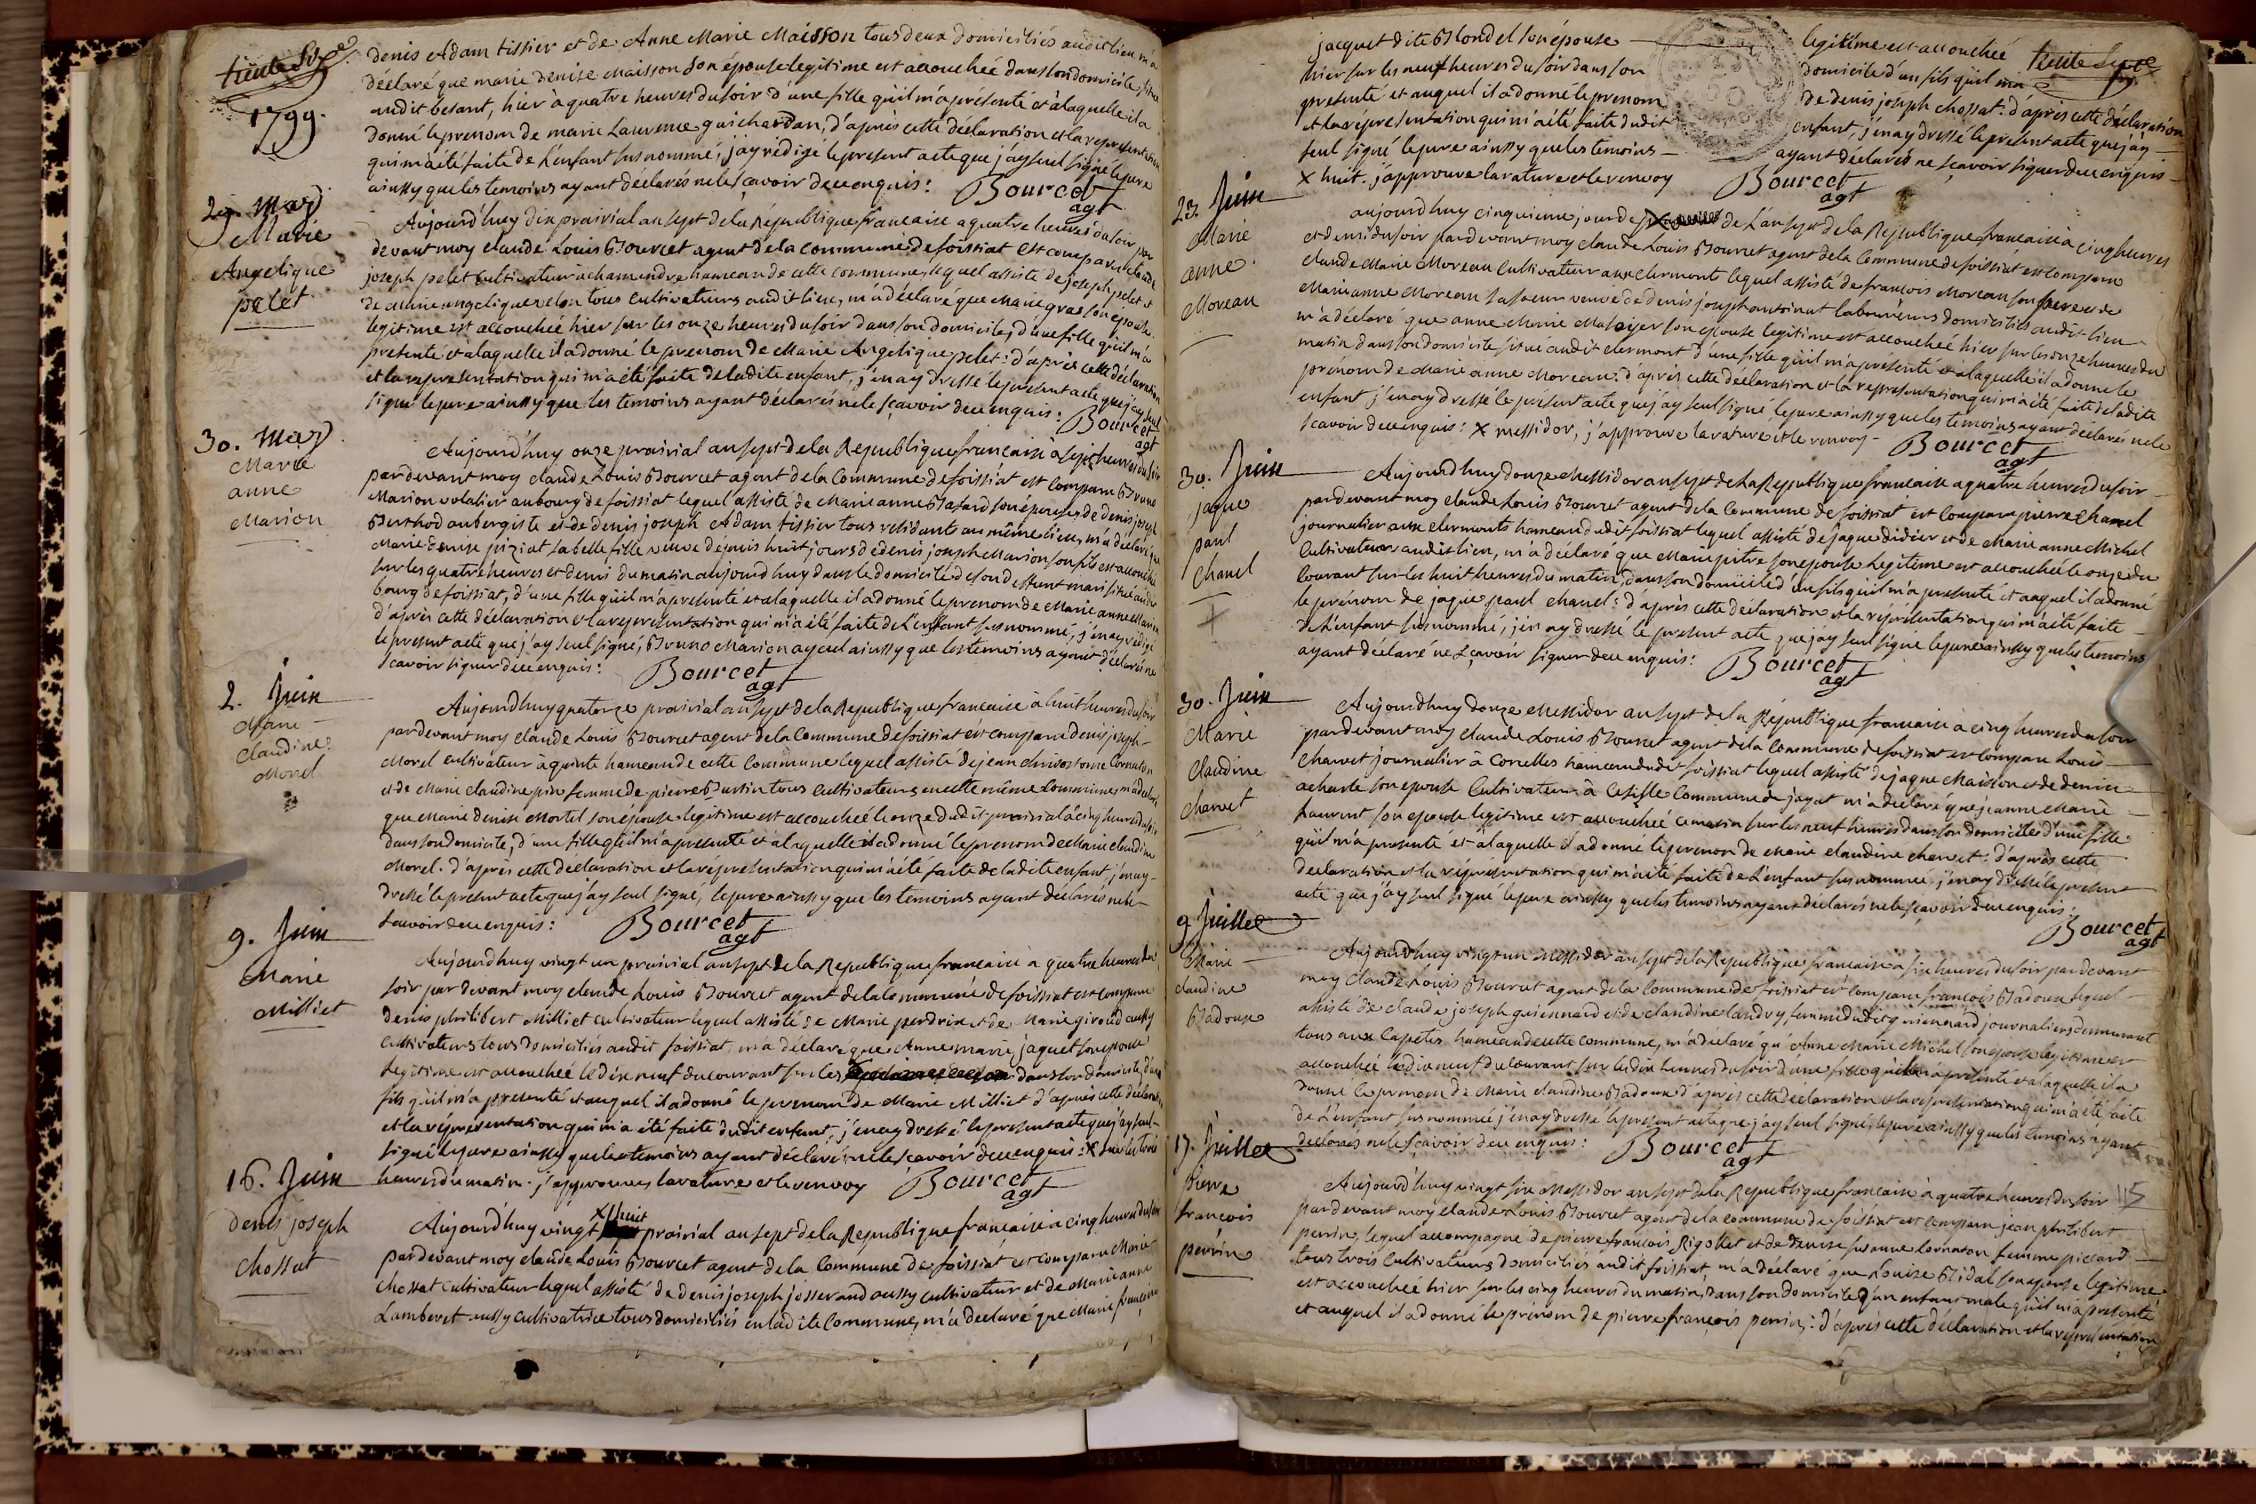 1799.
denis Adam tissier et de Anne Marie Maisson tous deux domiciliés audit lieu m'a
déclaré que marie denise Maisson son épouse legitime est accouchée dans son domicile situé
audit besant, hier à quatre heures du soir d'une fille qu'il m'a présenté et a laquelle il a
donné le prenom de marie Laurence guichardan, d'après cette déclaration et la representation
qui m'a été faite de L'enfant susnommé, j'ay rédigé le present acte que j'ay seul signé le pere
ainssy que les temoins ayant déclarés ne le sçavoir de ce enquis: Bourcet
agt
29. May
Marie
Angelique
pelet
Aujourd'huy dix prairial an sept de la République francaise a quatre heures du soir par
devant moy claude Louis Bourcet agent de la commune de foissiat est comparu claude
joseph pelet cultivateur a chamandre hameau de cette commune lequel assisté de joseph pelet et
de Marie angelique velon tous cultivateurs audit lieu, m'a déclaré que Marie gras son epouse
legitime est accouchée hier sur les onze heures du soir dans son domicile, d'une fille qu'il m'a
presenté et a laquelle il a donné le prenom de Marie Angelique pelet: d'après cette déclaration
et la representation qui m'a été faite de ladite enfant, j'en ay dressé le present acte que j'ay seul
signé le pere ainssy que les temoins ayant déclarés ne le scavoir de ce enquis: Bourcet
agt
30. May
Marie
anne
Marion
Aujourd'huy onze prairial an sept de la Republique francaise à sept heures du soir
par devant moy claude Louis Bourcet agent de la Commune de foissiat est comparu Bruno
Marion volalier au bourg de foissiat lequel assisté de Marie anne Bafard son épouse, de denis joseph
Berthod aubergiste et de denis joseph Adam tissier tous residants au même lieu, m'a déclaré que
Marie denise piziat sa belle fille veuve depuis huit jours de denis joseph Marion son fils est accouchée
sur les quatre heures et demi du matin aujourd'huy dans le domicile de son deffunt mari situé audit
bourg de foissiat, d'une fille qu'il m'a presenté et a laquelle il a donné le prenom de Marie anne Marion
d'après cette déclaration et la representation qui m'a été faite de L'enfant susnommé, j'en ay rédigé
le present acte que j'ay seul signé, Bruno Marion ayeul ainssy que les temoins ayant déclarés ne
scavoir signer de ce enquis: Bourcet
agt
2. Juin
Marie
claudine
Morel
Aujourd'huy quatorze prairial an sept de la Republique francaise à huit heures du soir
par devant moy claude Louis Bourcet agent de la Commune de foissiat est comparu denis joseph
Morel cultivateur a quinte hameau de cette Commune lequel assisté de jean chrisostome Cornaton
et de Marie claudine pin femme de pierre Burtin tous cultivateurs en cette même Commune, m'a declaré
que Marie denise Mortel son épouse legitime est accouchée le onze dudit prairial à cinq heures du soir
dans son domicile, d'une fille qu'il m'a presenté et a laquelle il a donné le prenom de Marie claudine
Morel. d'après cette déclaration et la réprésentation qui m'a été faite de ladite enfant j'en ay
dressé le present acte que j'ay seul signé, le pere ainssy que les temoins ayant déclarés ne le
scavoir de ce enquis: Bourcet
agt
9. Juin
Marie
Milliet
Aujourd'huy vingt un prairial an sept de la Republique francaise a quatre heures du
soir par devant moy claude Louis Bourcet agent de la Commune de foissiat est comparu
denis philibert Milliet cultivateur lequel assisté de Marie perdrix et de Marie giroud aussy
cultivateurs tous domiciliés audit foissiat, m'a déclaré que Anne marie jaquet son epouse
legitime est accouchée le dix neuf du courant sur les dans son domicile d'un
fils qu'il m'a presenté et auquel il a donné le prenom de Marie Milliet d'après cette déclaration
et la réprésentation qui m'a été faite dudit enfant, j'en ay dressé le present acte que j'ay seul
signé le pere ainssy que les temoins ayant déclaré ne le scavoir de ce enquis: X sur les trois
heures du matin. j'approuve la rature et le renvoy Bourcet
agt
16. Juin
denis joseph
chossat
Aujourd'huy vingt X huit prairial an sept de la Republique francaise à cinq heures du soir
par devant moy claude Louis Bourcet agent de la Commune de foissiat est comparu Marie
chossat cultivateur lequel assisté de denis joseph josserand aussy cultivateur et de Marie anne
Lamberet aussy cultivatrice tous domiciliés en ladite Commune, m'a declaré que Marie françoise
jacquet dite Blondel son épouse legitime est accouchée
hier sur les neuf heures du soir dans son domicile d'un fils qu'il m'a
presenté et auquel il a donné le prenom de denis joseph chossat: d'après cette déclaration
et la representation qui m'a été faite dudit enfant, j'en ay dressé le présent acte que j'ay
seul signé le pere ainssy que les temoins ayant déclarés ne sçavoir signer de ce enquis
X huit. j'approuve la rature et le renvoy Bourcet
agt
23. Juin
Marie
anne
Moreau
aujourd'huy cinquieme jour de X de L'an sept de la Republique francaise a cinq heures
et demi du soir par devant moy claude Louis Bourcet agent de la Commune de foissiat est comparu
claude Marie Moreau cultivateur aux clermont lequel assisté de francois Moreau son frere et de
Marie anne Moreau sa soeur veuve de denis joseph laboureurs domiciliés audit lieu
m'a déclaré que anne Marie son epouse legitime est accouchée hier sur les onze heures du
matin dans son domicile situé audit clermont d'une fille qu'il m'a présenté et a laquelle il a donné le
prénom de Marie anne Moreau: d'après cette déclaration et la representation qui m'a été faite de ladite
enfant j'en ay dressé le présent acte que j'ay seul signé le pere ainssy que les temoins ayant déclarés ne le
scavoir de ce enquis: X messidor, j'approuve la rature et le renvoy - Bourcet
agt
30. Juin
jaque
paul
chanel
Aujourd'huy douze Messidor an sept de la Republique francaise a quatre heures du soir
par devant moy claude Louis Bourcet agent de la Commune de foissiat est comparu pierre chanel
journalier aux clermonts hameau dudit foissiat lequel assisté de jaque didier et de Marie anne Michel
Cultivateurs audit lieu, m'a déclaré que Marie pitre son epouse legitime est accouchée le onze du
Courant sur les huit heures du matin, dans son domicile d'un fils qu'il m'a presenté et auquel il a donné
le prénom de jaque paul chanel: d'après cette déclaration et la réprésentation qui m'a été faite
de L'enfant susnommé, j'en ay dressé le present acte que j'ay seul signé le pere ainssy que les temoins
ayant déclaré ne sçavoir signer de ce enquis: Bourcet
agt
30. Juin
Marie
Claudine
charvet
Aujourd'huy douze Messidor an sept de la République francaise a cinq heures du soir
par devant moy claude Louis Bourcet agent de la Commune de foissiat est comparu Louis
charvet journalier à Corcelles hameau dudit foissiat lequel assisté de jaque Maisson et de denise
acharle son epouse Cultivateurs à Cesille Commune de jayat m'a déclaré que jeanne Marie
haurent son epouse legitime est accouchée ce matin sur les neuf heures dans son domicile d'une fille
qu'il m'a presenté et a laquelle il a donné le prenom de Marie claudine charvet: d'après cette
déclaration et la réprésentation qui m'a été faite de L'enfant susnommée, j'en ay dressé le present
acte que j'ay seul signé le pere ainssy que les temoins ayant déclarés ne le scavoir de ce enquis:
Bourcet
agt
9. Juillet
Marie
claudine
Badoux
Aujourd'huy vingt un Messidor an sept de la Republique francaise a six heures du soir par devant
moy Claude Louis Bourcet agent de la Commune de foissiat est comparu francois Badoux lequel
assisté de claude joseph guiennard et de claudine landry femme dudit guiennard journaliers demeurant
tous aux Capetes hameau de cette commune, m'a declaré qu'Anne Marie Michel son epouse legitime est
accouchée le dix neuf du courant sur les dix heures du soir d'une fille qu'il m'a presenté et a laquelle il a
donné le prenom de Marie claudine Badoux d'après cette déclaration et la representation qui m'a été faite
de L'enfant susnommé j'en ay dressé le present acte que j'ay seul signé, le pere ainssy que les temoins ayant
declarés ne le scavoir de ce enquis: Bourcet
agt
17. Juillet
Pierre
françois
perrin
Aujourd'huy vingt six Messidor an sept de la Republique francaise à quatre heures du soir
par devant moy claude Louis Bourcet agent de la commune de foissiat est comparu jean philibert
perrin, lequel accompagné de pierre francois Rigollet et de denise susanne Cornaton femme piccard
tous trois Cultivateurs domiciliés audit foissiat, m'a déclaré que Louise Bidal son epouse legitime
est accouchée hier sur les cinq heures du matin, dans son domicile d'un enfant male qu'il m'a presenté
et auquel il a donné le prénom de pierre françois perrin: d'après cette déclaration et la representation